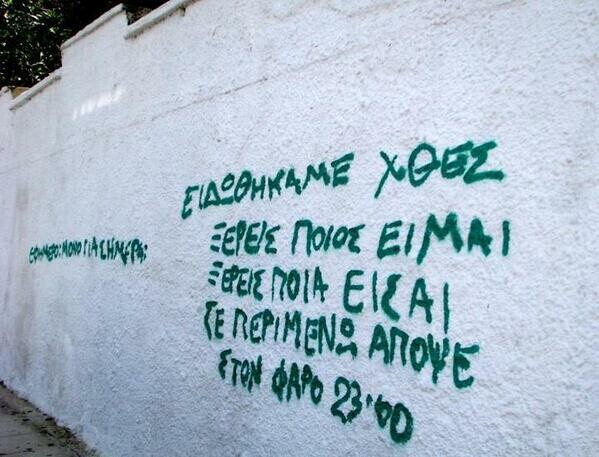 ΕΙΔΩΘΗΚΑΜΕ ΧΘΕΣ
ΞΕΡΕΙΣ ΠΟΙΟΣ ΕΙΜΑΙ
ΞΕΡΕΙΣ ΠΟΙΑ ΕΙΣΑΙ
ΣΕ ΠΕΡΙΜΕΝΩ ΑΠΟΨΕ
ΣΤΟΝ ΦΑΡΟ 23:00
ΜΟΝΟ ΓΙΑ ΣΗΜΕΡΑ: